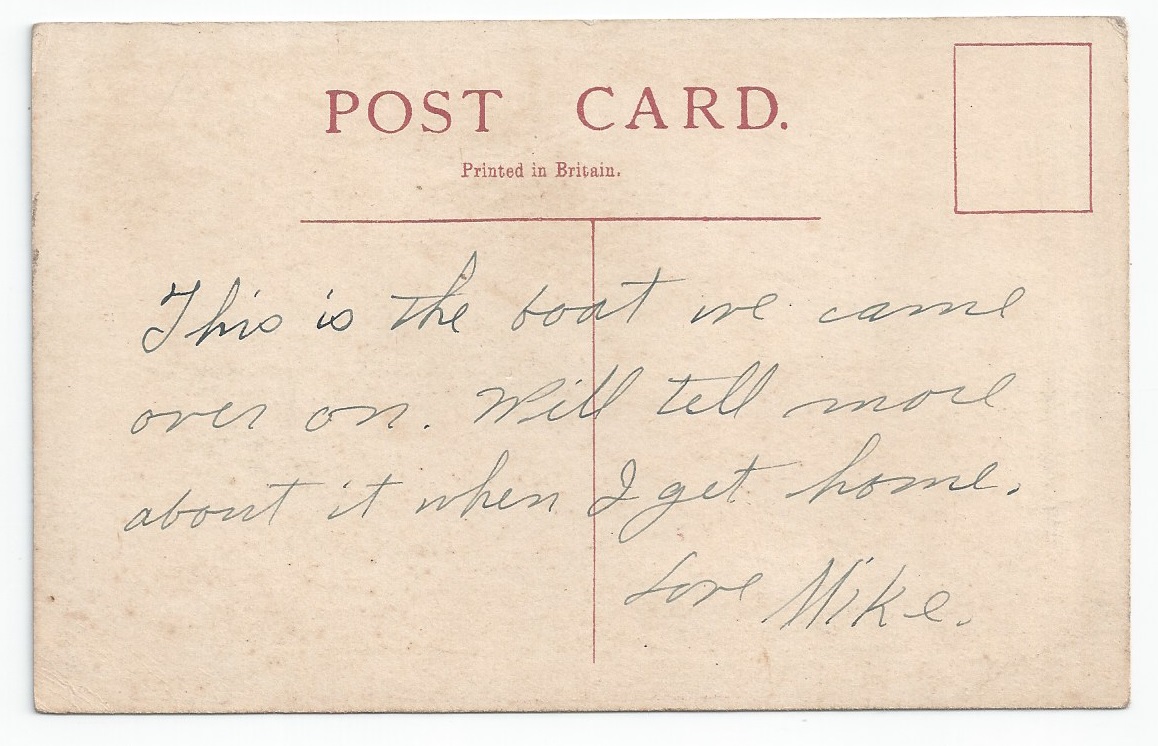 POST CARD.
Printed in Britain.
This is the boat we came
over on. Will tell more
about it when I get home.
Love Mike.